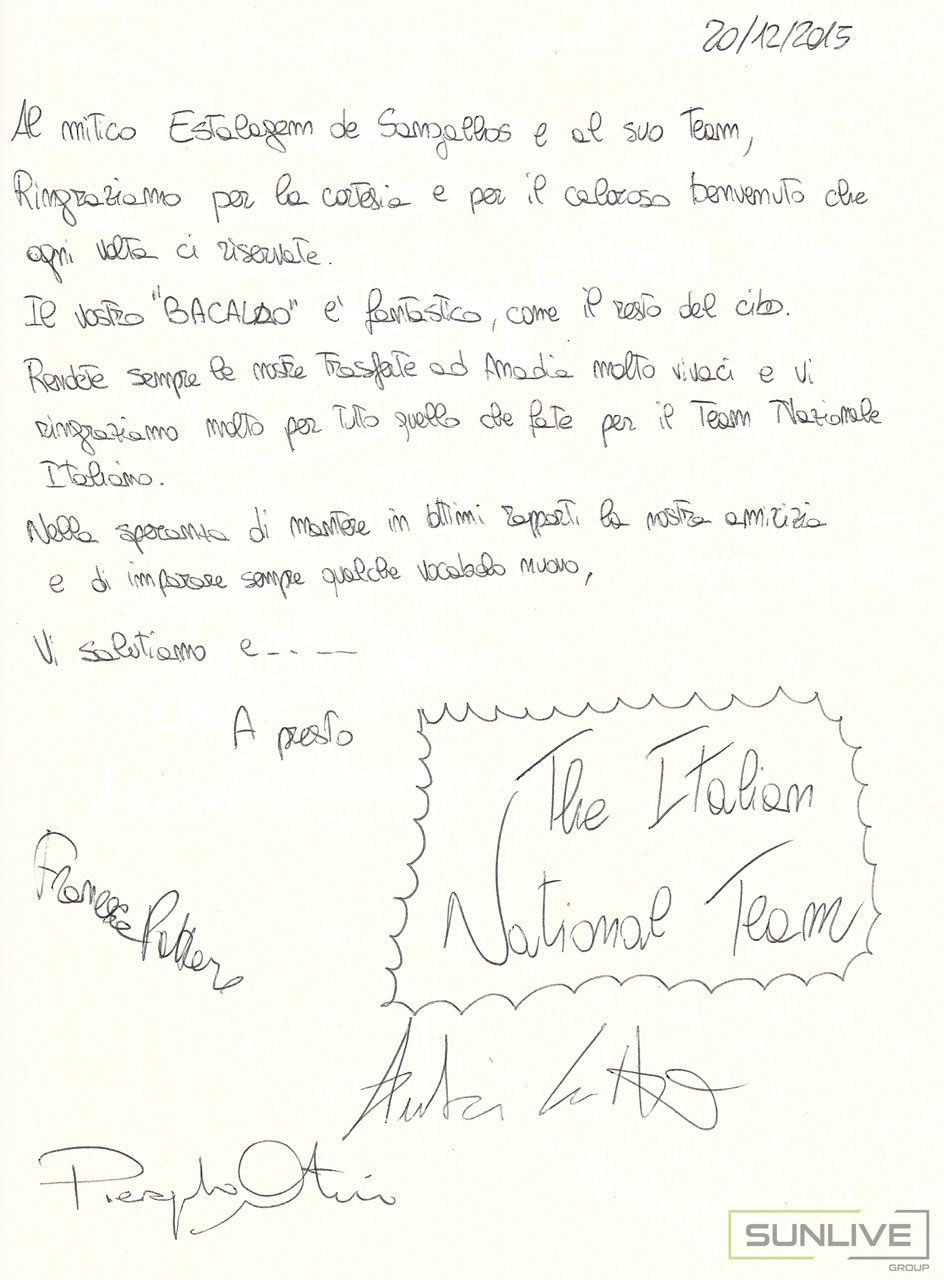 20/12/2015
Al mitico Estalagem de Sangalhos e al suo Team,
Ringraziamo per la cortesia e per il caloroso benvenuto che
ogni volta ci riservate.
Il vostro "BACALAO" e' fantastico, come il resto del cibo.
Rendete sempre le nostre trasferte ad Anadia molto vivaci e vi
ringraziamo molto per tutto quello che fate per il Team Nazionale
Italiano.
Nella speranza di mantere in ottimi rapporti la nostra amicizia
e di imparare sempre qualche vocabolo nuovo,
Vi salutiamo e-----
A presto
The Italian
National Team
SUNLIVE
GROUP